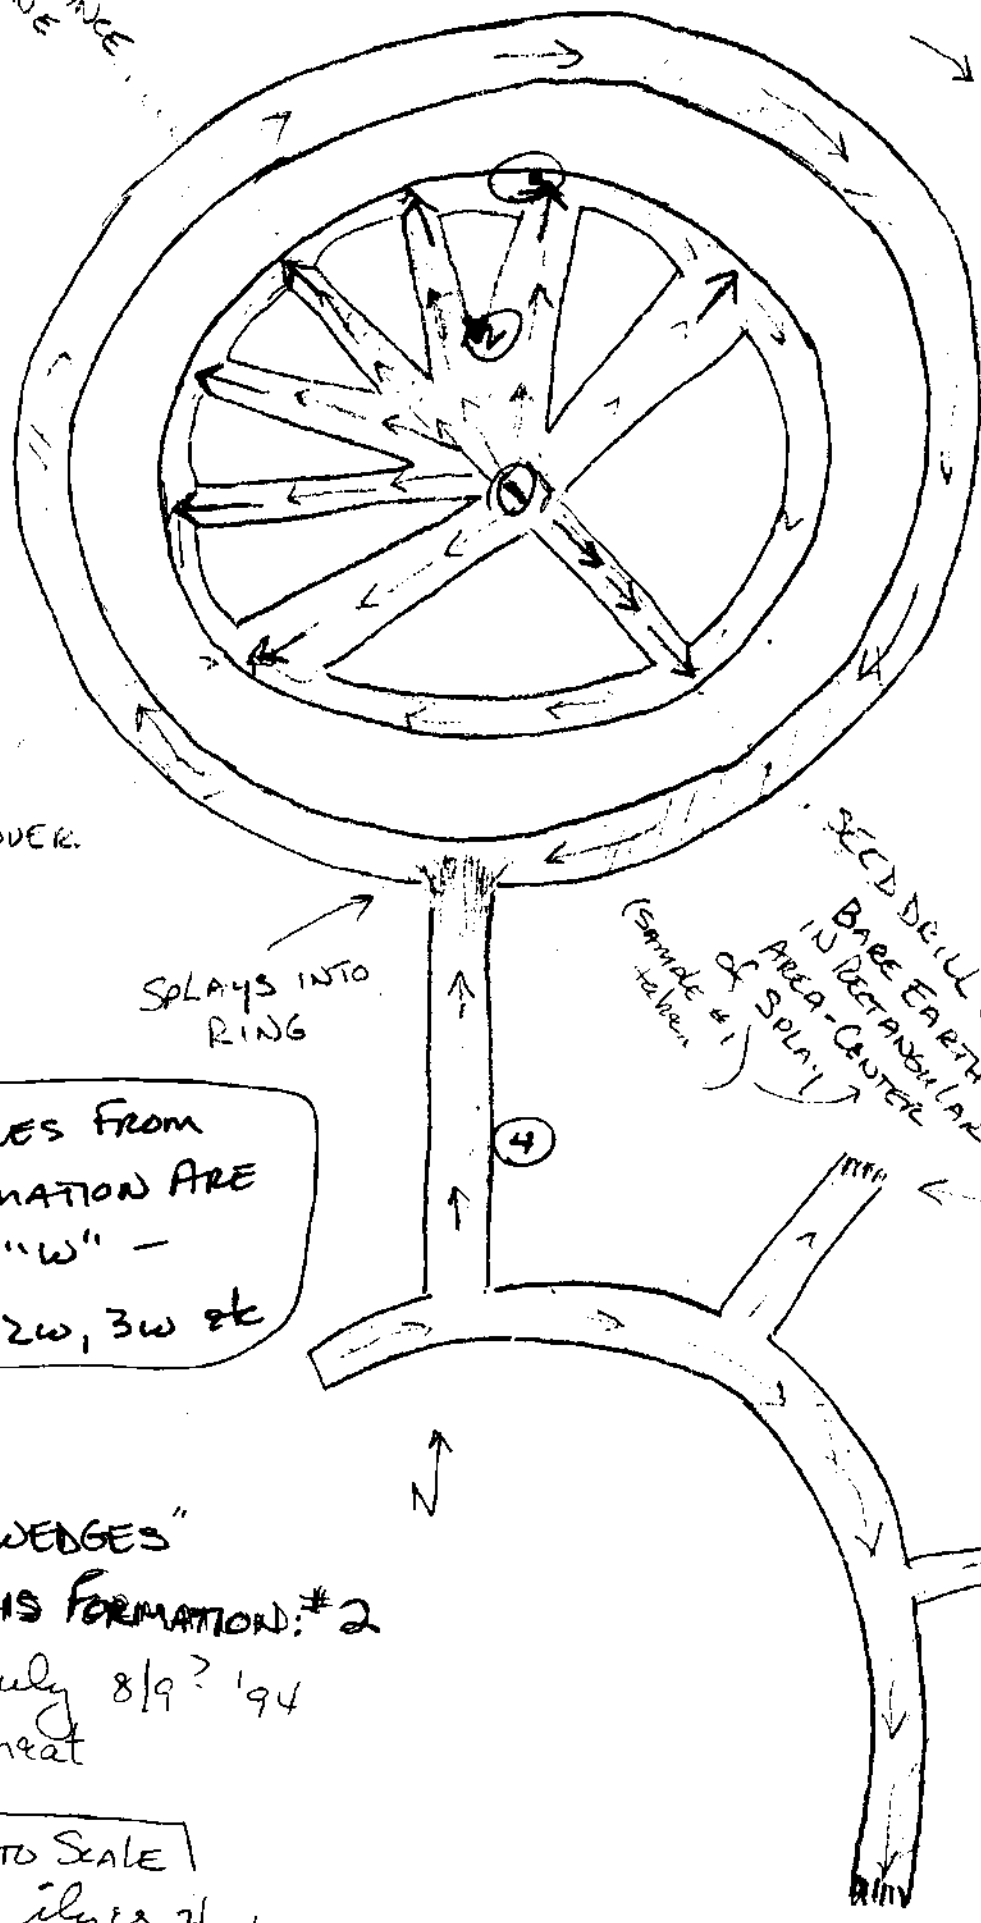 NCE
NE
OVER.
SPLAYS INTO
RING
SEED DRILL
BARE EARTH
IN RECTANGULAR
AREA-CENTER
OF SPLAY
(SAMPLE #1
taken
1
2
4
LES FROM
MATION ARE
"W" —
2W, 3W etc
N
WEDGES"
IS FORMATION: #2
uly 8/9? '94
heat
TO SCALE